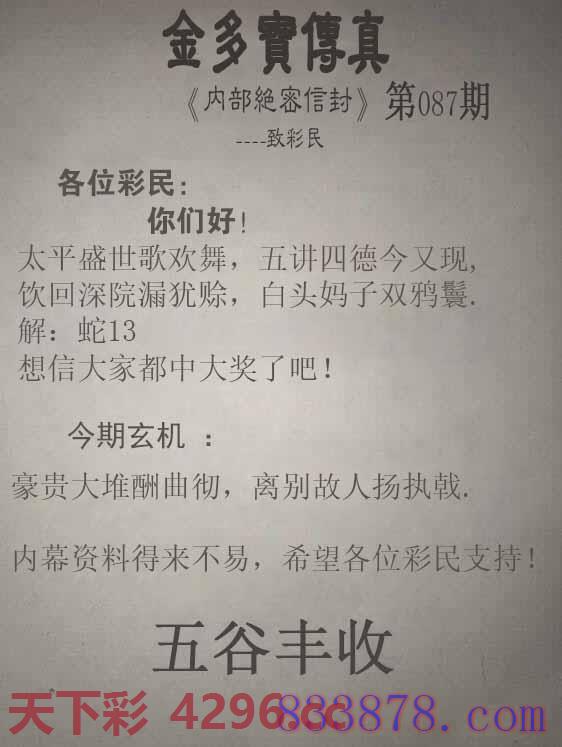 金多寳傳真
《内部絶密信封》第087期
----致彩民
各位彩民:
你们好!
太平盛世歌欢舞，五讲四德今又现,
饮回深院漏犹赊，白头妈子双鸦鬟.
解：蛇13
想信大家都中大奖了吧!
今期玄机 ：
豪贵大堆酬曲彻，离别故人扬执戟.
内幕资料得来不易，希望各位彩民支持!
五谷丰收
天下彩 4296.cc
883878.com